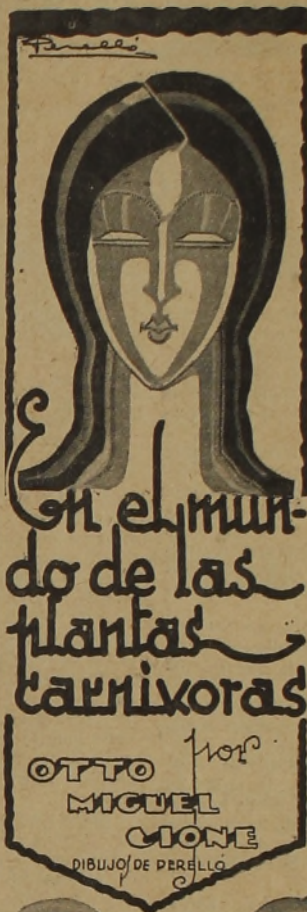 Perelló
En el mun-
do de las
plantas
carnivoras
por
OTTO
MIGUEL
CIONE
DIBUJOS DE PERELLÓ